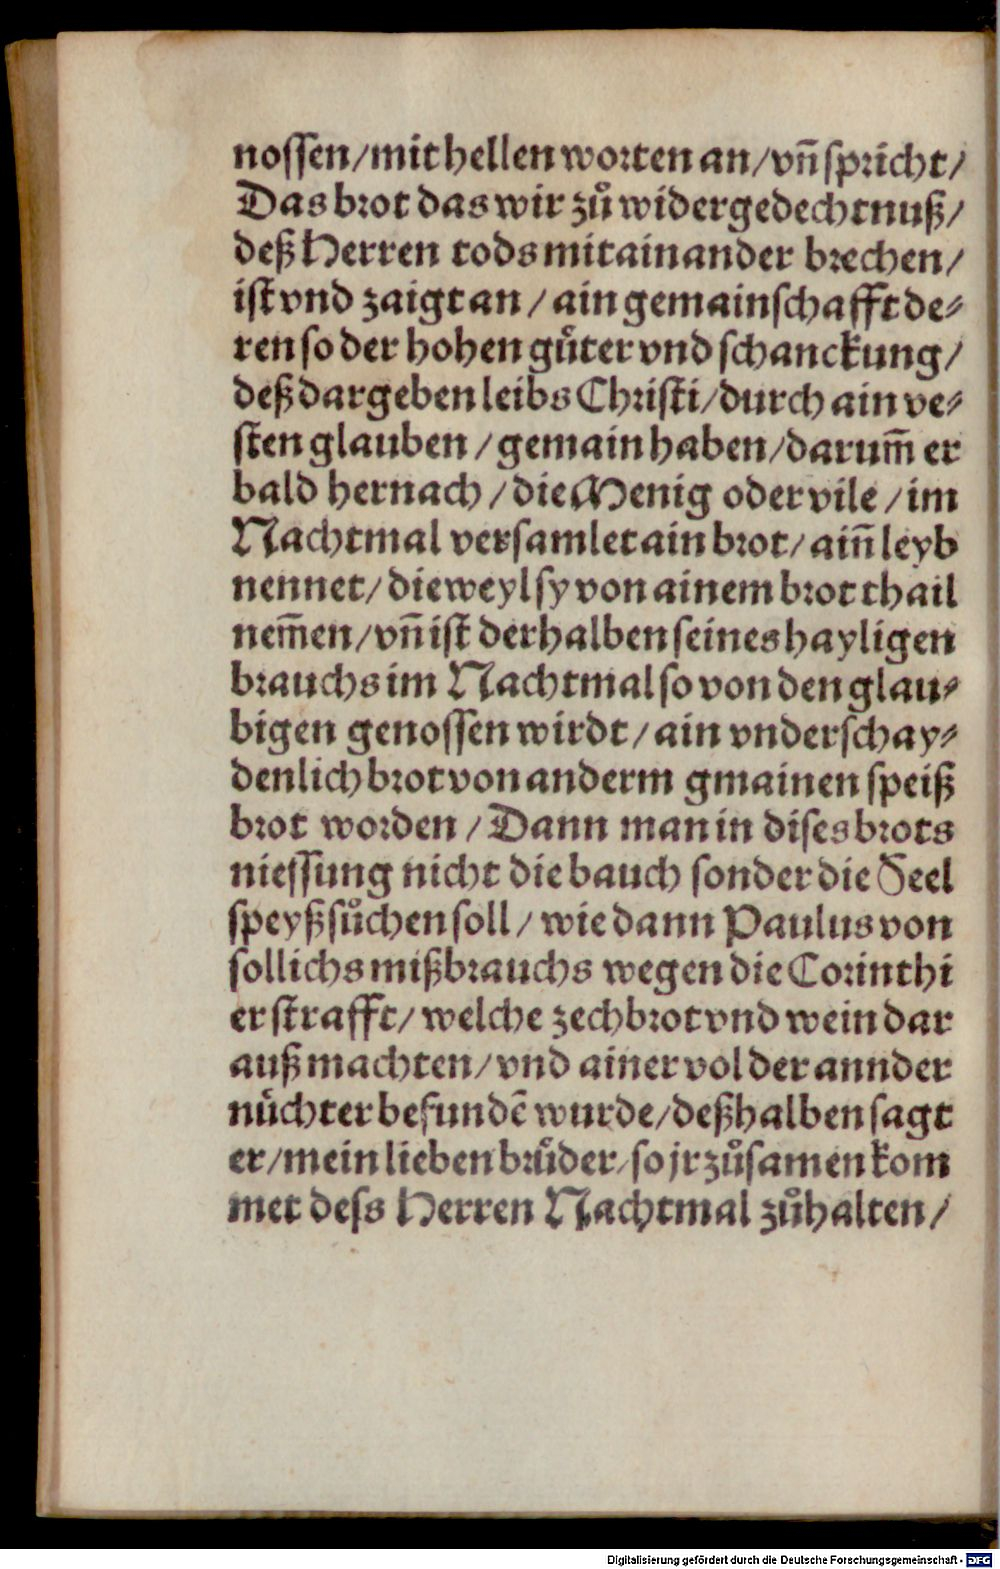 nossen/mit hellen worten an/vn̄ spricht/
Das brot das wir zů widergedechtnuß/
deß Herren tods mitainander brechen/
ist vnd zaigt an/ain gemainschafft de⸗
ren so der hohen gůter vnd schanckung/
deß dargeben leibs Christi/durch ain ve⸗
sten glauben/gemain haben/darum̄ er
bald hernach/die Menig oder vile/im
Nachtmal versamlet ain brot/ain̄ leyb
nennet/dieweyl sy von ainem brot thail
nem̄en/vn̄ ist derhalben seines hayligen
brauchs im Nachtmal so von den glau⸗
bigen genossen wirdt/ain vnderschay⸗
denlich brot von anderm gmainen speiß
brot worden/Dann man in dises brots
niessung nicht die bauch sonder die Seel
speyß sůchen soll/wie dann Paulus von
sollichs mißbrauchs wegen die Corinthi
er strafft/welche zechbrot vnd wein dar
auß machten/vnd ainer vol der annder
nůchter befundē wurde/deßhalben sagt
er/mein lieben brůder/so jr zůsamen kom
met dess Herren Nachtmal zůhalten/
Digitalisierung gefördert durch die Deutsche Forschungsgemeinschaft - DFG